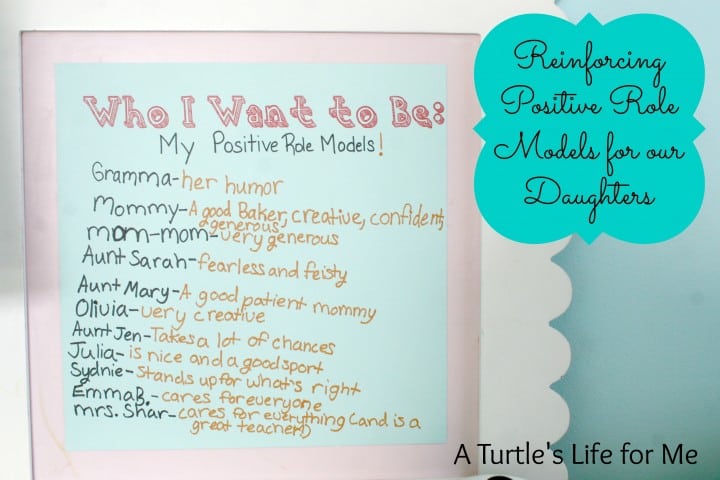 Who I Want to Be:
My Positive Role Models!
Gramma-her humor
Mommy-A good Baker, creative, confident,
generous
mom-mom-very generous
Aunt Sarah-fearless and feisty
Aunt Mary-A good patient mommy
Olivia-very creative
Aunt Jen-Takes a lot of chances
Julia-is nice and a good sport
Sydnie-Stands up for what's right
Emma B.-cares for everyone
mrs. Shar-cares for everything (and is a
great teacher!)
Reinforcing
Positive Role
Models for our
Daughters
A Turtle's Life for Me